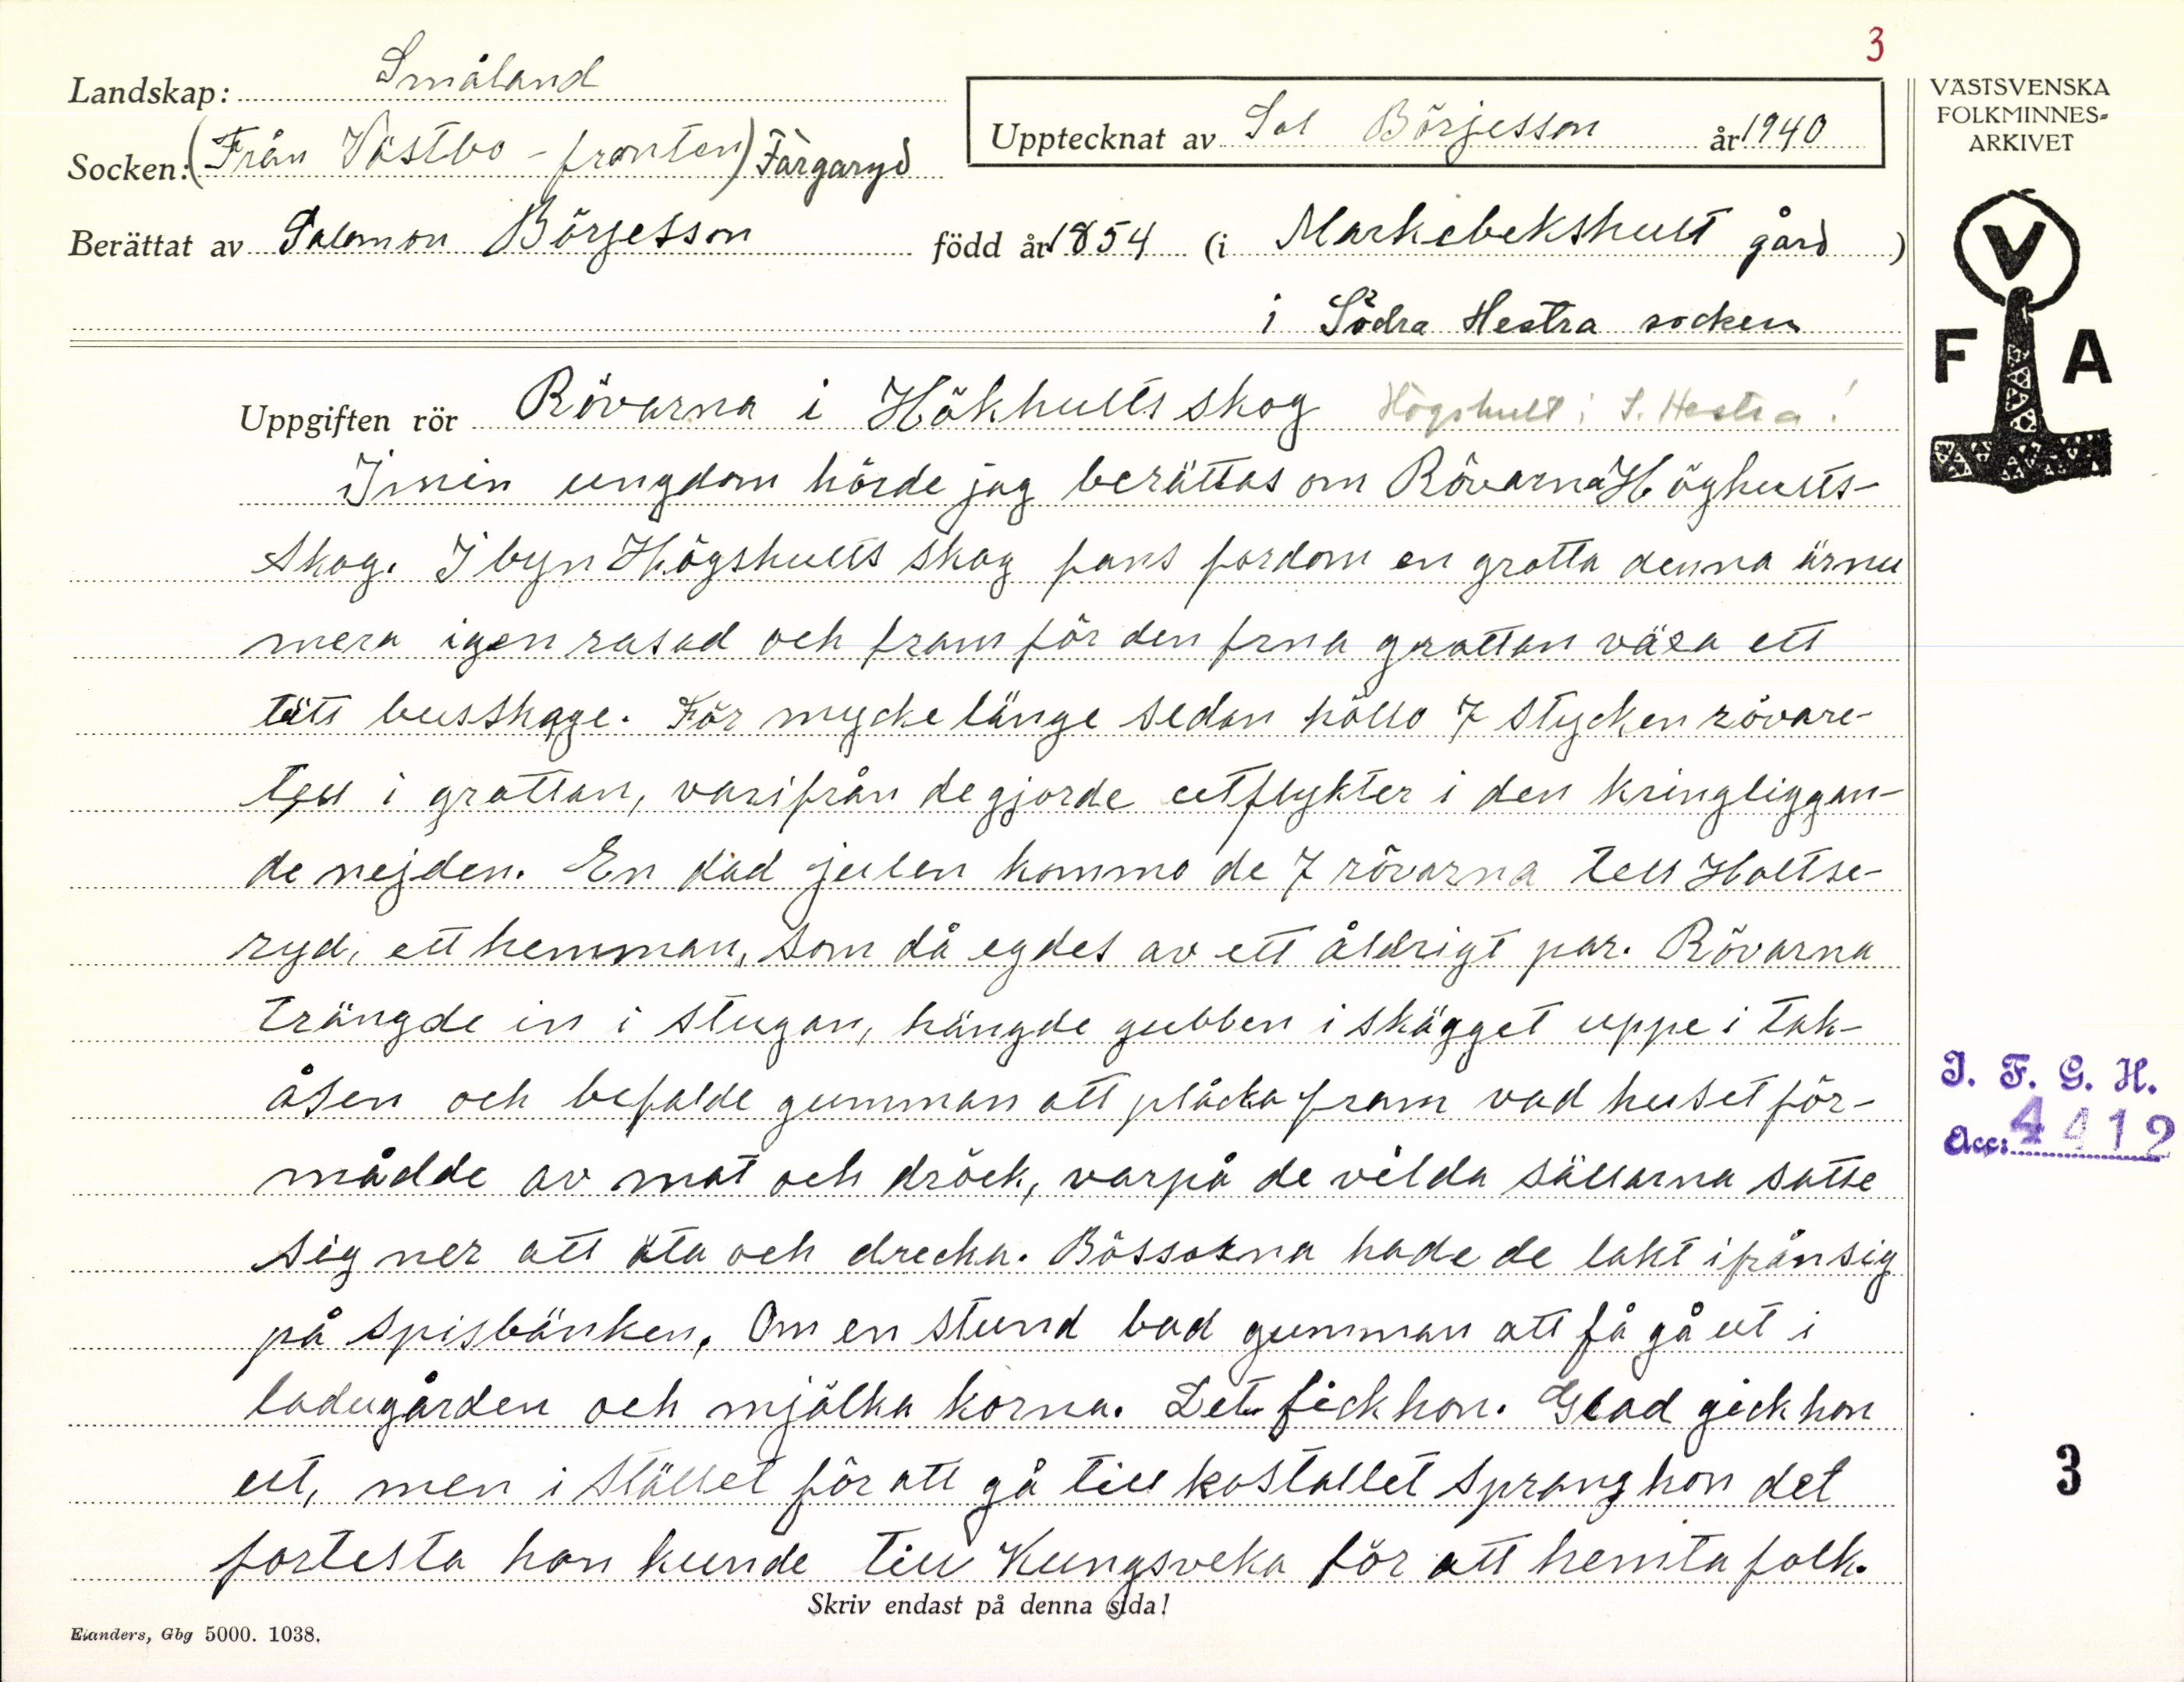 3
Landskap: Småland
Socken: (Från Västbo-fronten) Färgaryd
Upptecknat av Sal Börjesson år 1940
Berättat av Salomon Börjesson född år 1854 (i Markebekshult gård)
i Södra Hestra socken
VÄSTSVENSKA
FOLKMINNES-
ARKIVET
V
F A
Uppgiften rör Rövarna i Hökhults skog Högshult i S. Hestra!
I min ungdom hörde jag berättas om Rövarna Höghults-
skog. I byn Högshults skog fans fordom en grotta denna är nu
mera igen rasad och fram för den frna grottan växa ett
tätt busskage. För mycke länge sedan höllo 7 stycken rövare
till i grottan, varifrån de gjorde utflykter i den kringliggan-
de nejden. En dad julen kommo de 7 rövarna till Holtse-
ryd, ett hemman, som då egdes av ett åldrigt par. Rövarna
trängde in i stugan, hängde gubben i skägget uppe i tak-
åsen och befalde gumman att plåcka fram vad huset för-
mådde av mat och dröck, varpå de vilda sällarna satte
sig ner att äta och drecka. Bössorna hade de lakt ifrån sig
på spisbänken. Om en stund bad gumman att få gå ut i
ladugården och mjölka korna. Det fick hon. Glad gick hon
ut, men i stället för att gå till kostallet sprang hon det
fortesta hon kunde till Kungsveka för att hemta folk.
I. F. G. H.
Acc: 4412
3
Skriv endast på denna sida!
Elanders, Gbg 5000. 1038.